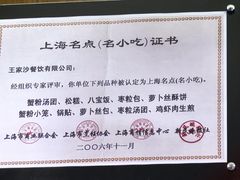 上海名点(名小吃)证书
王家沙餐饮有限公司:
经组织专家评审,你单位下列品种被认定为上海名点(名小吃)。
蟹粉汤团、松糕、八宝饭、枣粒包、萝卜丝酥饼
蟹粉小笼、锅贴、萝卜丝包、枣泥汤团、鸡虾肉生煎
上海市
上海市烹饪协会
上海
中心
二〇〇六年十一月